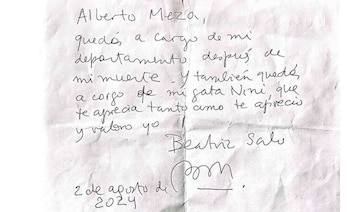 Alberto Meza,
quedás a cargo de mi
departamento después de
mi muerte. y también quedás
a cargo de mi gata Nini que
te aprecia tanto como te aprecio
y valoro yo
Beatriz Sarlo
2 de agosto de
2024